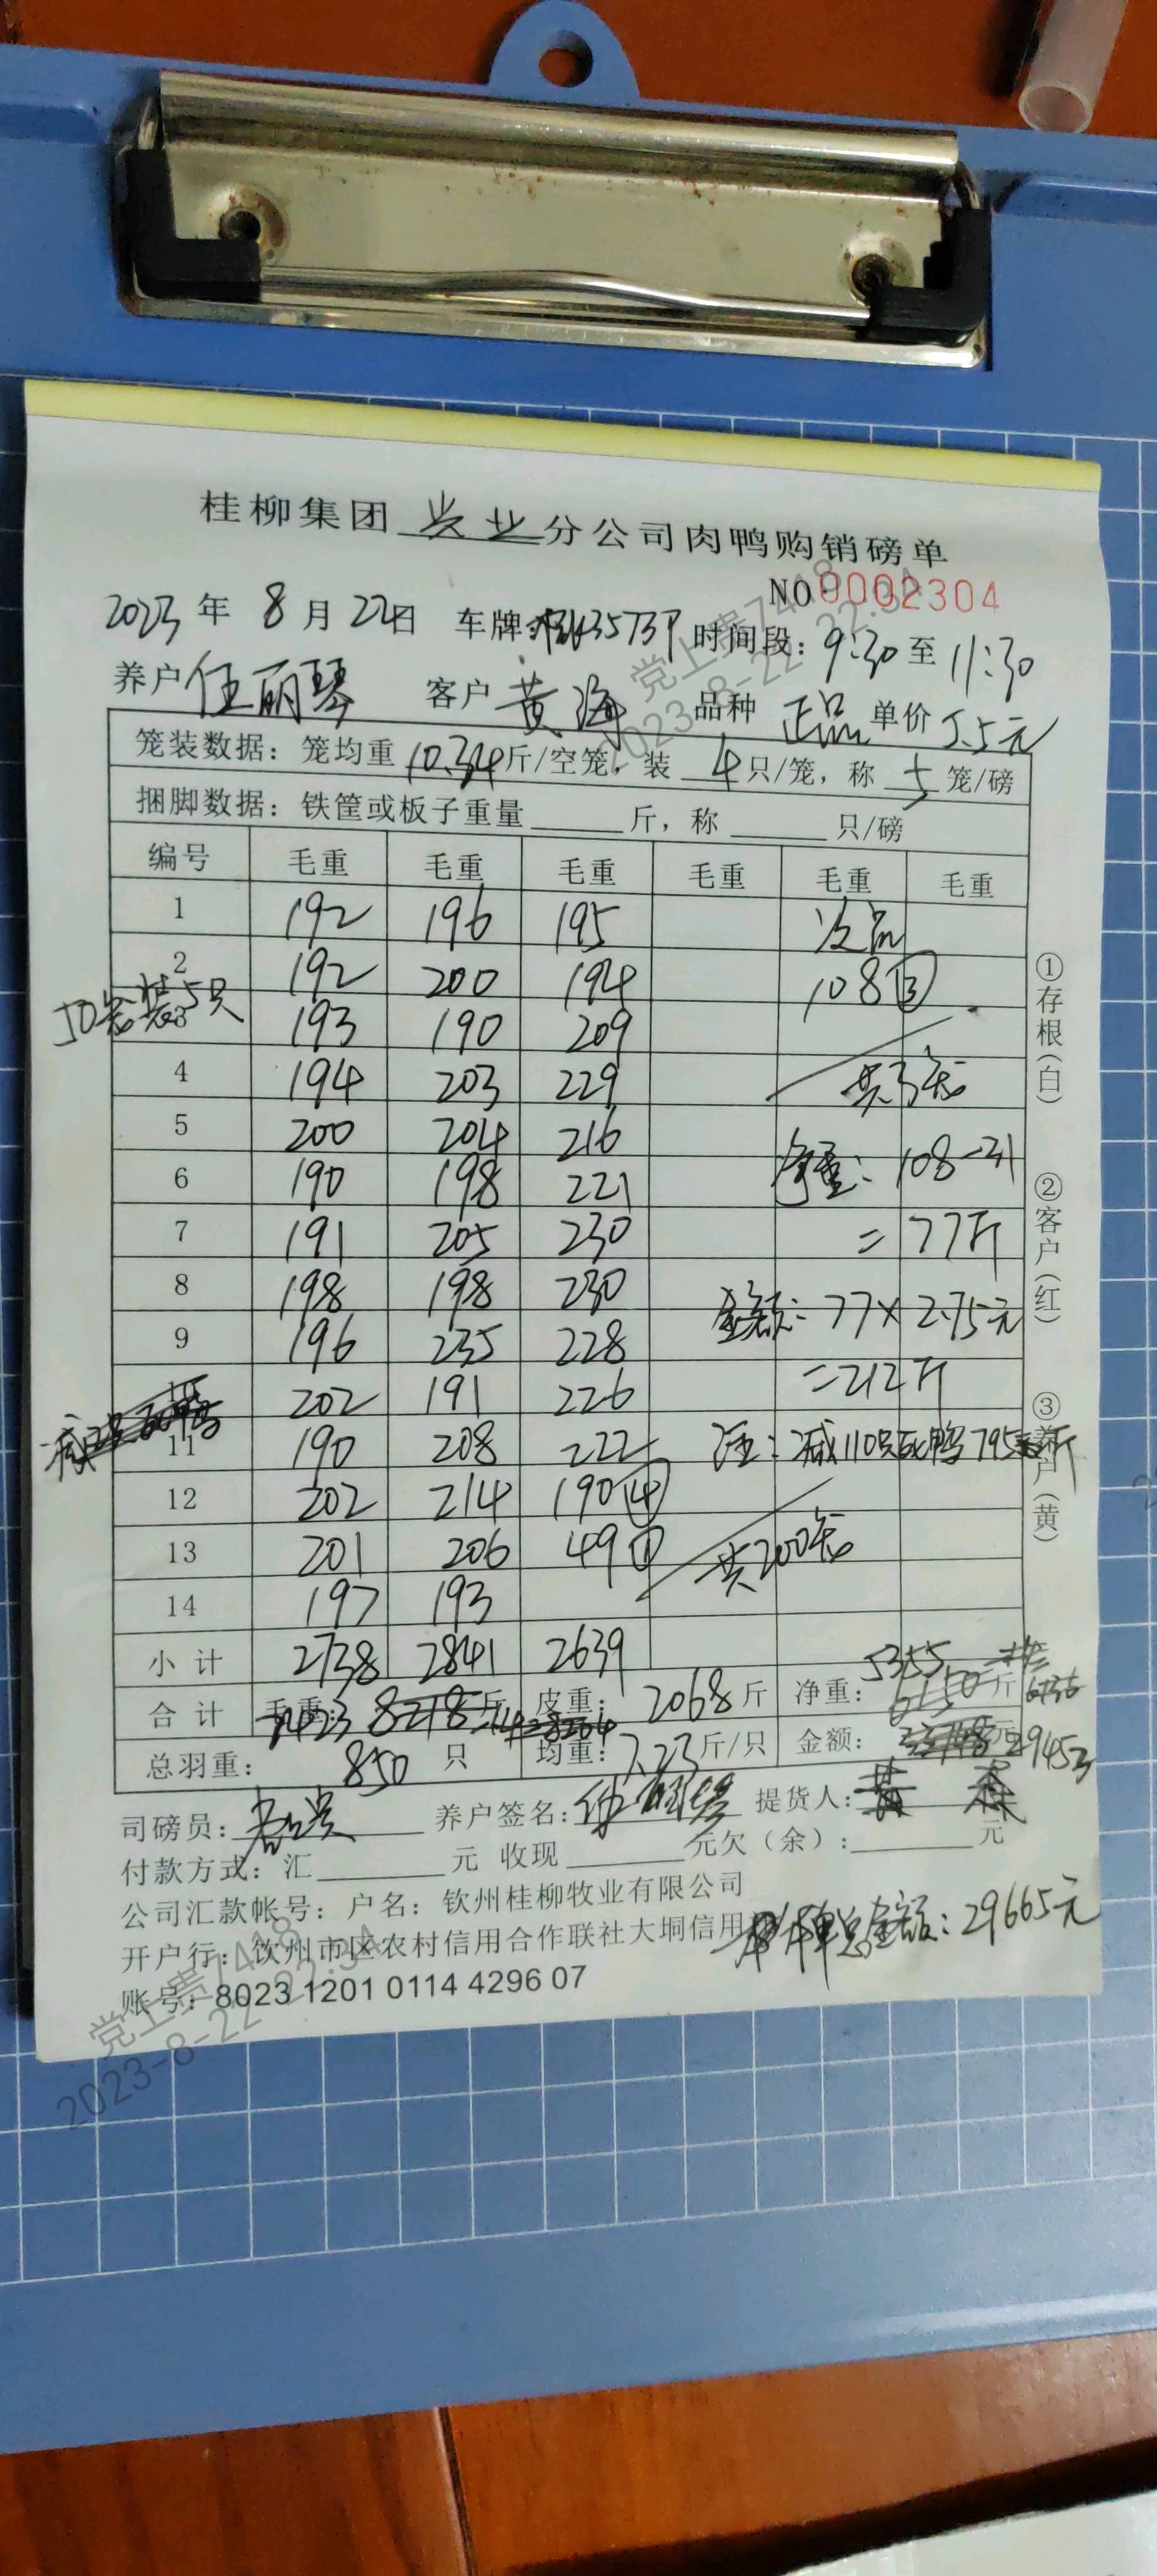 桂柳集团 兴业 分公司肉鸭购销磅单
NO 0002304
2023 年 8 月 22日 车牌: 35737 时间段: 9:30 至 11:30
养户 任丽琴 客户 黄海 品种 正品 单价 5.5元
笼装数据: 笼均重 10.34 斤/空笼, 装 4 只/笼, 称 5 笼/磅
捆脚数据: 铁筐或板子重量 斤, 称 只/磅
编号 毛重 毛重 毛重 毛重 毛重 毛重
1 192 196 195 次品
2 192 200 194 108 ③
50笼装5只
3 193 190 209
4 194 203 229 共3笼
5 200 204 216
6 190 198 221 净重: 108-31
7 191 205 230 = 77斤
8 198 198 230
9 196 235 228 金额: 77×2.75元
202 191 226 =212斤
11 190 208 222 注: 减110只死鸭795斤
12 202 214 190 ④
13 201 206 49 ① 共200笼
14 197 193
小计 2738 2841 2639
合计 毛重: 7423 8218 斤 皮重: 2068 斤 净重: 5355 6150 斤
总羽重: 850 只 均重: 7.23 斤/只 金额: 29453
司磅员: 养户签名: 提货人:
付款方式: 汇 元 收现 元欠(余): 元
公司汇款帐号: 户名: 钦州桂柳牧业有限公司
开户行: 钦州市区农村信用合作联社大垌信用
单总金额: 29665元
账号: 8023 1201 0114 4296 07
①存根(白) ②客户(红) ③养户(黄)
党上贵7418
2023-8-22 22:34
党上贵7418
2023-8-22 22:34